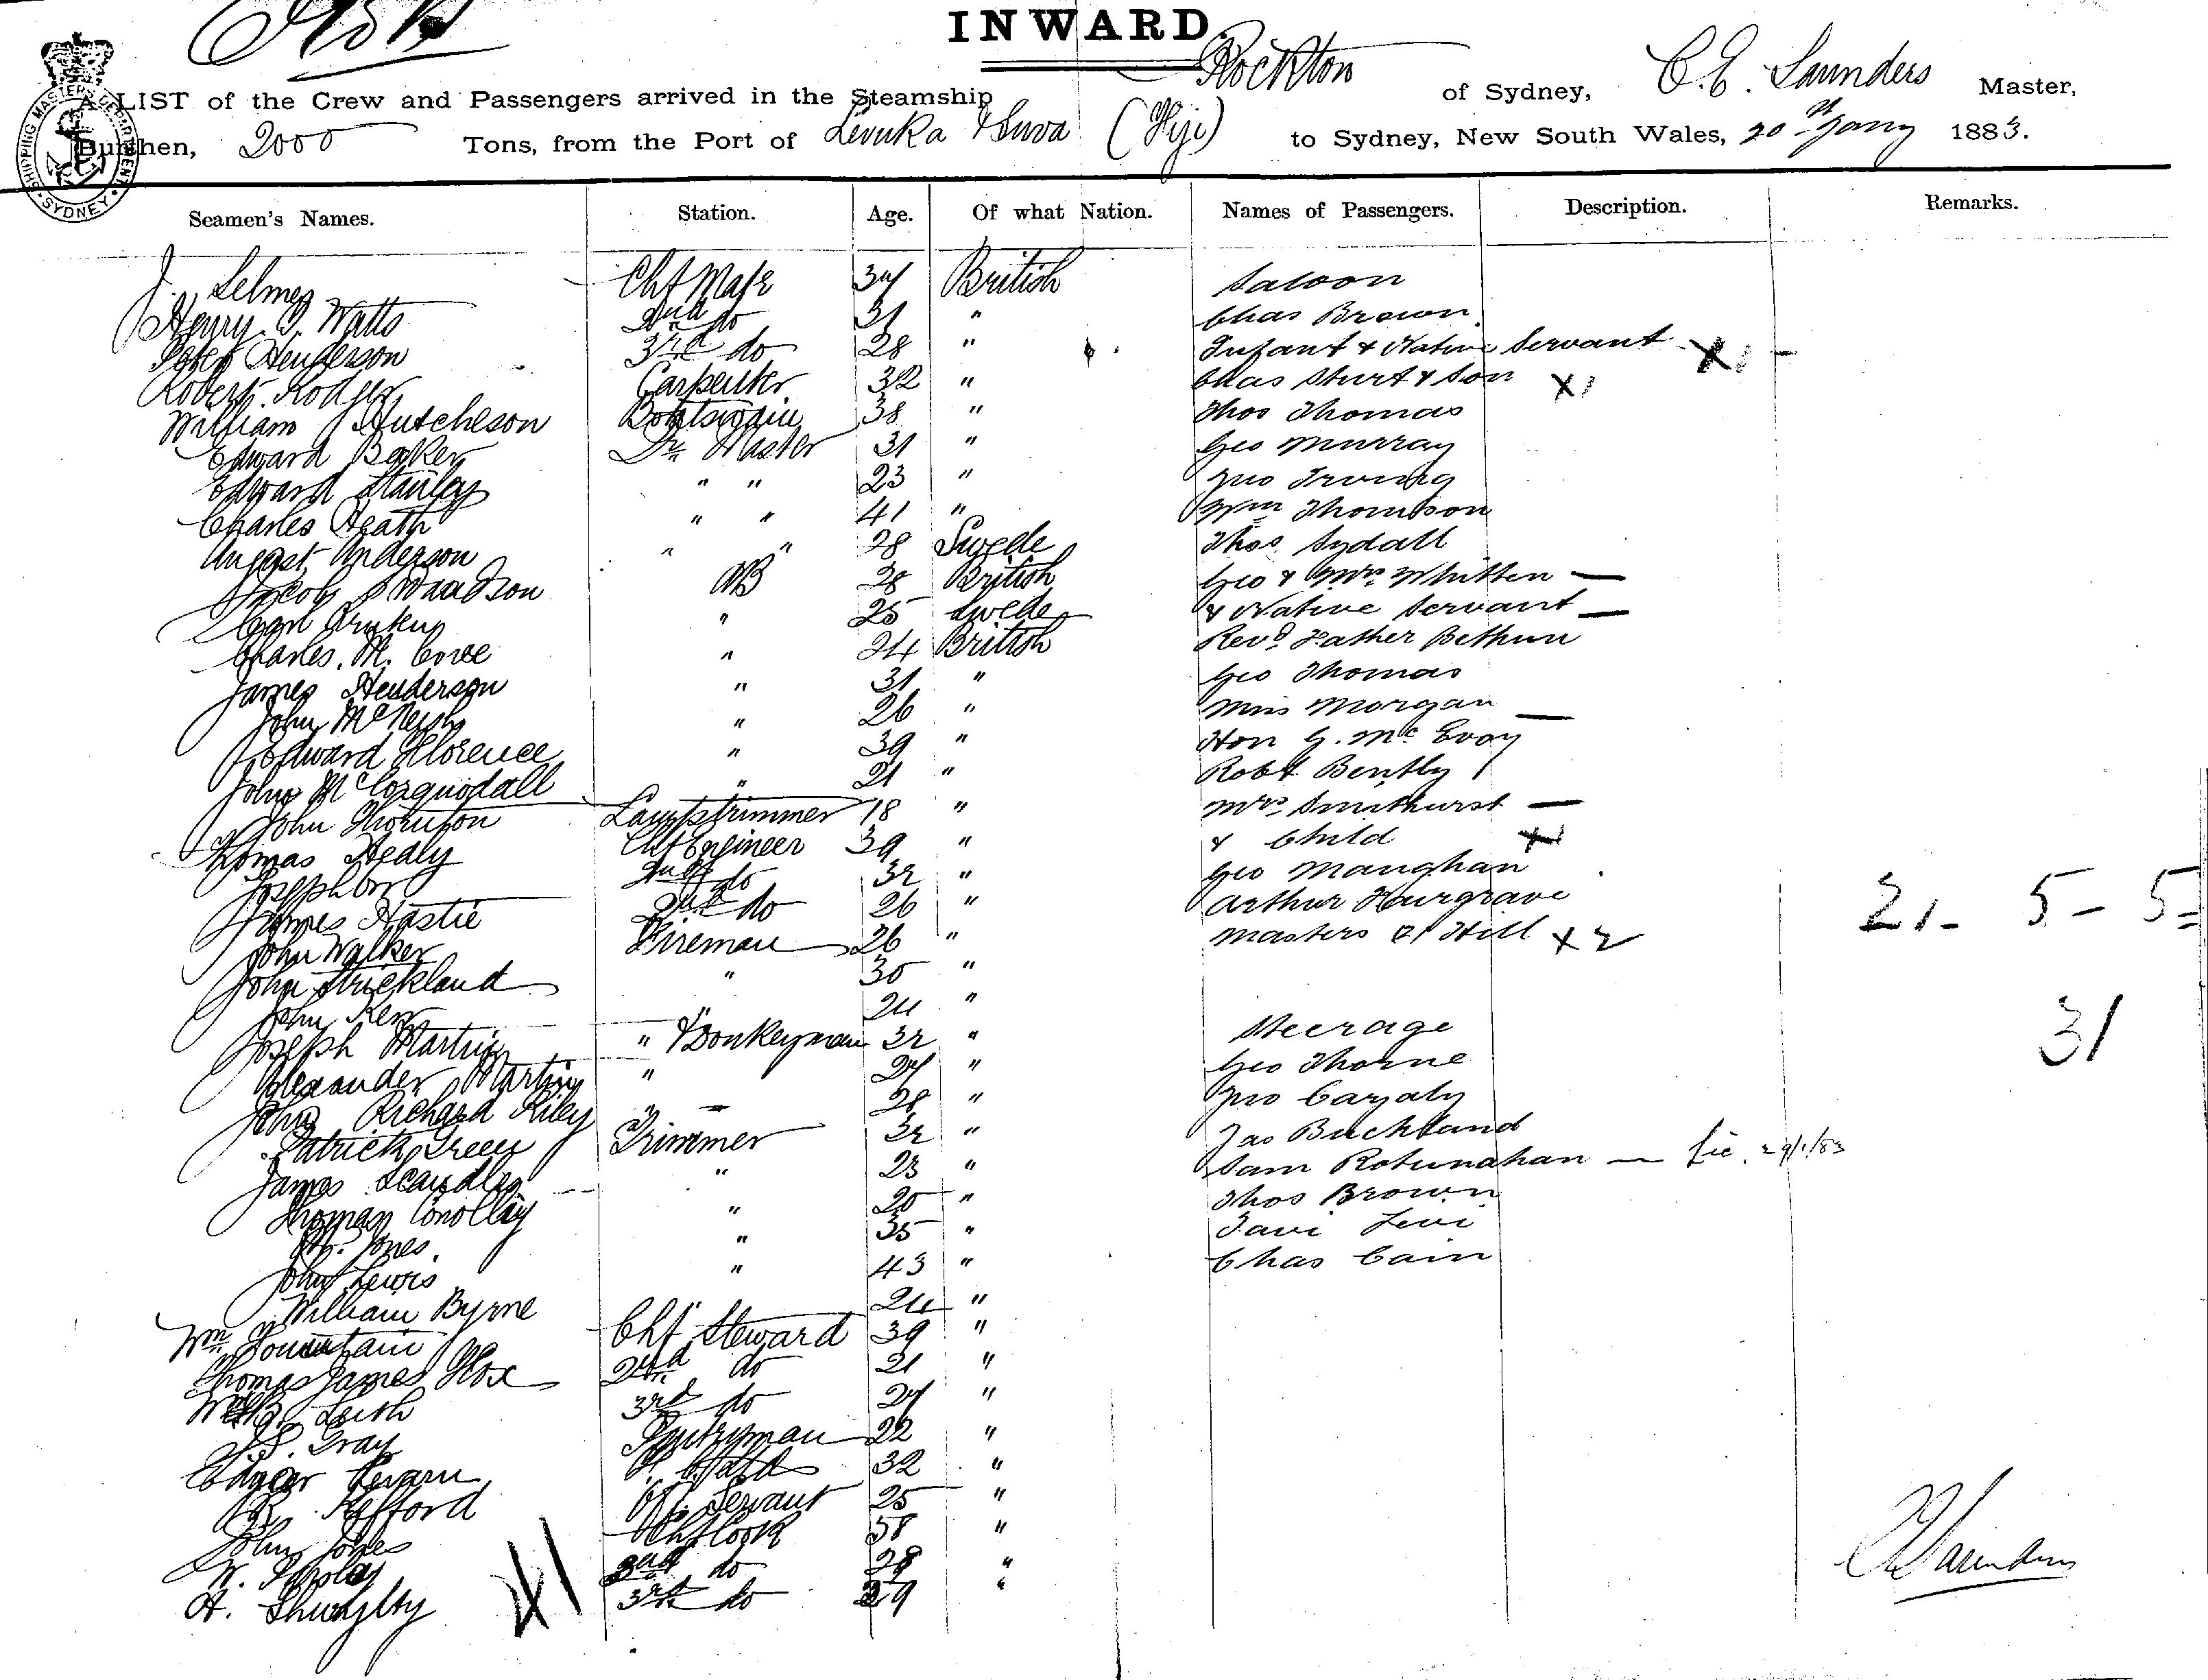 INWARD.
A LIST of the Crew and Passengers arrived in the Steamship Rockton of Sydney, C. E. Saunders Master,
Burthen, 2000 Tons, from the Port of Levuka & Suva (Fiji) to Sydney, New South Wales, 20th Jany 1883.
SHIPPING MASTER'S DEPARTMENT SYDNEY
Seamen's Names. Station. Age. Of what Nation. Names of Passengers. Description. Remarks.
J. Selmes Chf Mate 34 British Saloon
Henry. Watts 2nd do 31 " Chas Brown
Peter Henderson 3rd do 28 " Infant & Native Servant X 1 -
Robert Rodger Carpenter 32 " Chas Sturt & Son X 1
William Hutcheson Boatswain 38 " Thos Thomas
Edward Baker Master 31 " Geo Murray
Edward Stanley " " 23 " Jno Irving
Charles Heath " " 41 " Wm Thomson
August Anderson " " 28 Swede Thos Sydall
Jacob AB 28 British Geo & Mrs Whitten —
Carl " 25 Swede & Native Servant —
Charles. M. Cove " 24 British Revd Father Bethun
James Henderson " 31 " Geo Thomas
John McNeish " 26 " Miss Morgan —
Edward Florence " 39 " Hon G. McEvoy
John McCorquodall " 21 " Robt Bently
John Thornton Lampstrimmer 18 " Mrs Smithurst —
Thomas Healy Chf Engineer 39 " & Child X 1
Joseph Orr 2nd do 32 " Geo Manghan
James Hastie do 26 " Arthur Hargrave 21 - 5 - 5 =
John Walker Fireman 26 " Masters 2 Hill X 2
John Strickland " 30 "
John Kerr " 24 " 31
Joseph Martin " & Donkeyman 32 " Steerage
Alexander Martin " 24 " Geo Thorne
John Richard Riley " 28 " Jno Cazaly
Patrick Green Trimmer 32 " Jas Buckland
James Scandlen " 23 " Sam Rotumahan — Lic. 29/1/83
Thomas Conolley " 20 " Thos Brown
Jones " 35 " Tavi Levi
John Lewis " 43 " Chas Cain
William Byrne " 24 "
Wm Fountain Chf Steward 39 "
Thomas James 2nd do 21 "
Leith 3rd do 24 "
Gray Pantryman 22 "
Edgar 32 "
R. Kefford Servant 25 "
John Jones Chf Cook 58 "
W. 2nd do 28 "
A. 3rd do 29 "
C E Saunders